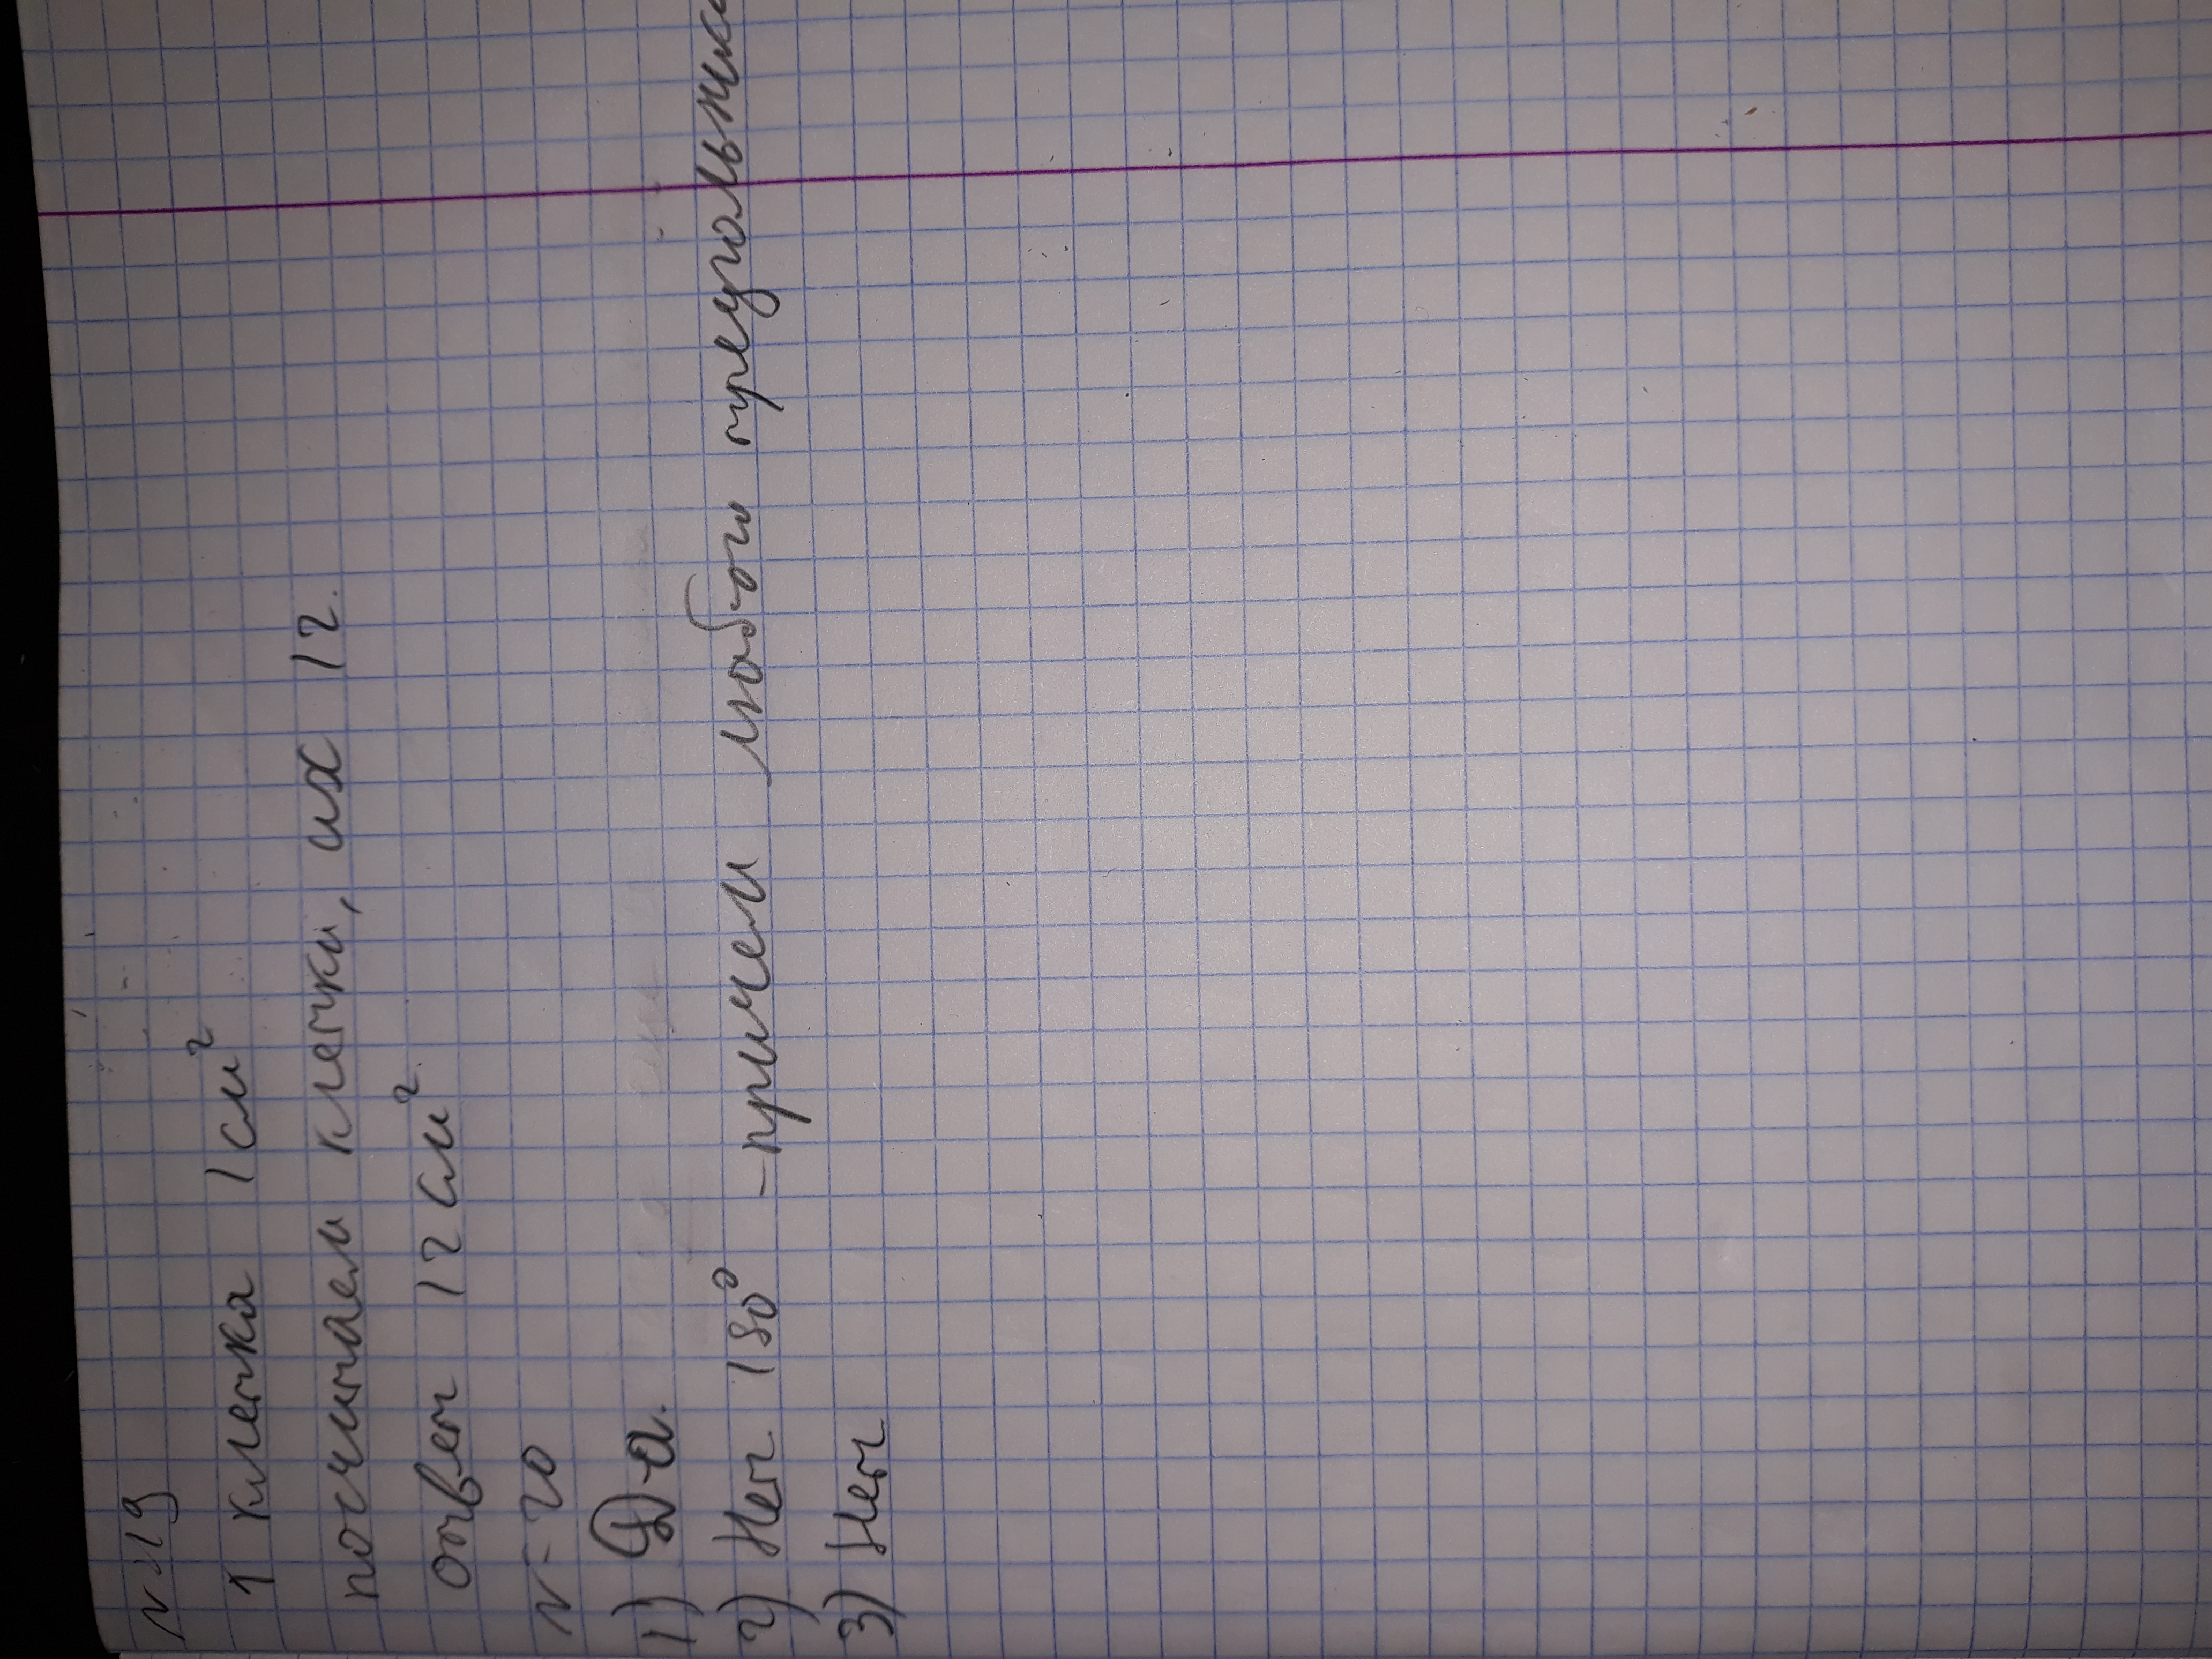 N-19
1 клетка 1см²
посчитаем клетки, их 12.
ответ 12 см².
N-20
1) Да.
2) Нет 180° -причем любого треугольника
3) Нет